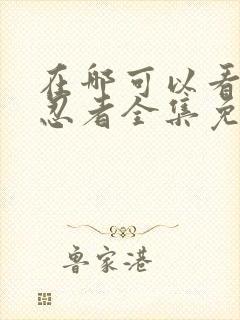 在哪可以看
忍者全集免
鲁家港